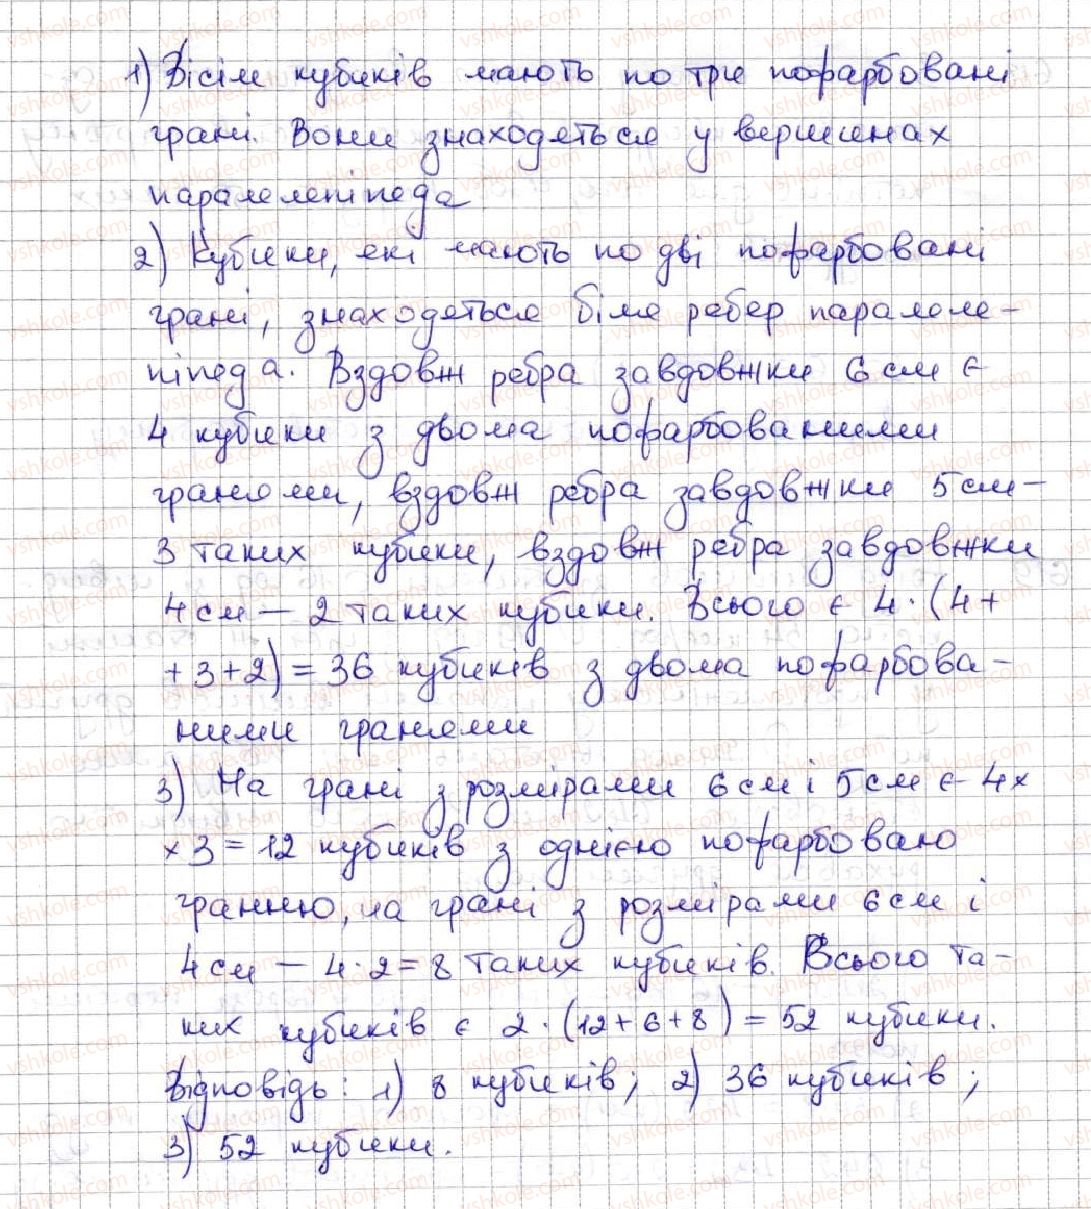 1) Вісім кубиків мають по три пофарбовані
грані. Вони знаходяться у вершинах
паралелепіпеда
2) Кубики, які мають по дві пофарбовані
грані, знаходяться біля ребер паралеле-
піпеда. Вздовж ребра завдовжки 6 см є
4 кубики з двома пофарбованими
гранями, вздовж ребра завдовжки 5 см -
3 таких кубики, вздовж ребра завдовжки
4 см - 2 таких кубики. Всього є 4 · (4 +
+ 3 + 2) = 36 кубиків з двома пофарбова-
ними гранями
3) На грані з розмірами 6 см і 5 см є 4 x
x 3 = 12 кубиків з однією пофарбованою
гранню, на грані з розмірами 6 см і
4 см - 4 · 2 = 8 таких кубиків. Всього та-
ких кубиків є 2 · (12 + 6 + 8) = 52 кубики.
Відповідь: 1) 8 кубиків; 2) 36 кубиків;
3) 52 кубики.
vshkole.com